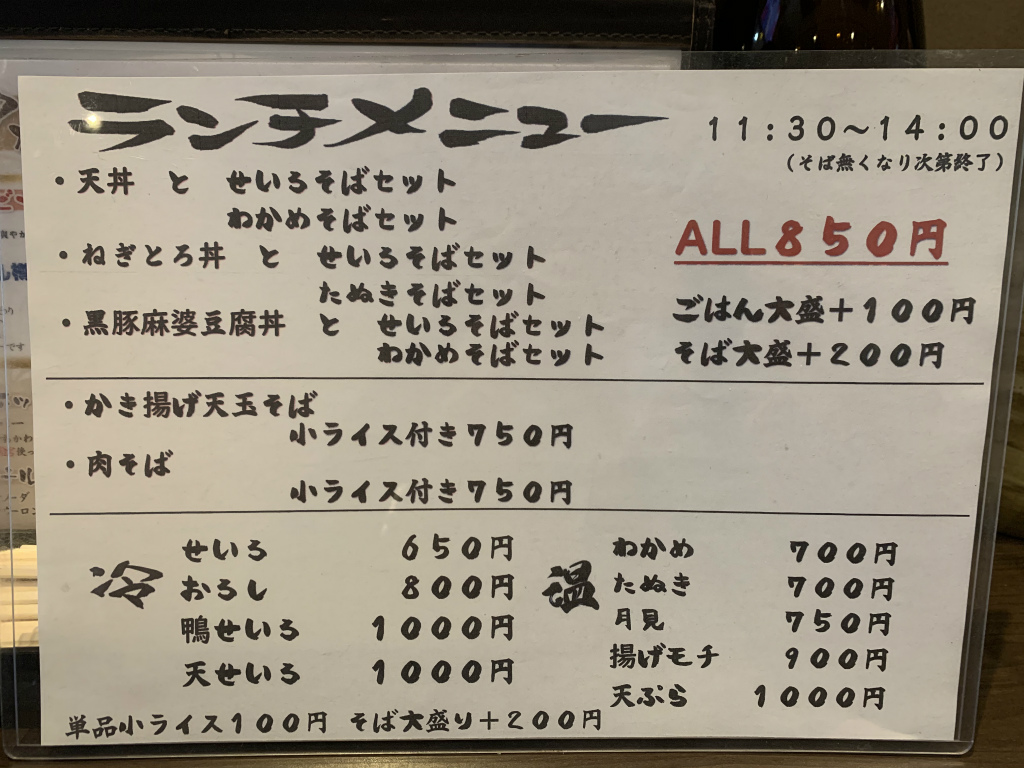 ランチメニュー
11:30～14:00
(そば無くなり次第終了)
・天丼 と せいろそばセット
わかめそばセット
・ねぎとろ丼 と せいろそばセット
たぬきそばセット
・黒豚麻婆豆腐丼 と せいろそばセット
わかめそばセット
ALL850円
ごはん大盛＋100円
そば大盛＋200円
・かき揚げ天玉そば
小ライス付き750円
・肉そば
小ライス付き750円
冷
せいろ 650円
おろし 800円
鴨せいろ 1000円
天せいろ 1000円
温
わかめ 700円
たぬき 700円
月見 750円
揚げモチ 900円
天ぷら 1000円
単品小ライス100円 そば大盛り＋200円